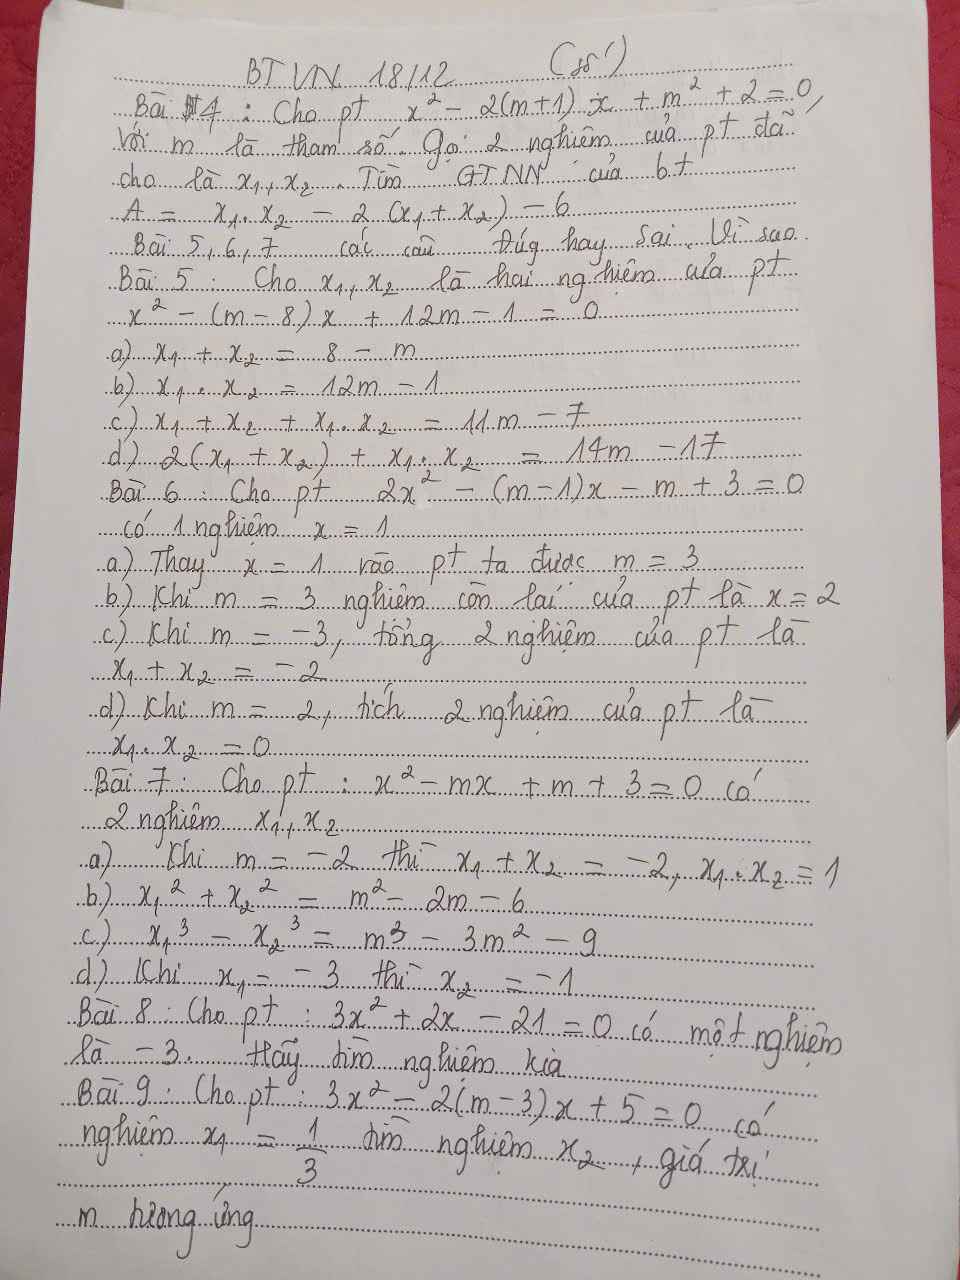 BTVN 18/12 (số)
Bài 4 : Cho pt x² - 2(m+1) x + m² + 2 = 0,
Với m là tham số. Gọi 2 nghiệm của pt đã
cho là x₁, x₂. Tìm GTNN của bt
A = x₁.x₂ - 2 (x₁ + x₂) - 6
Bài 5, 6, 7 các câu Đúg hay Sai. Vì sao.
Bài 5 : Cho x₁, x₂ là hai nghiệm của pt
x² - (m - 8) x + 12m - 1 = 0
a) x₁ + x₂ = 8 - m
b) x₁ . x₂ = 12m - 1
c) x₁ + x₂ + x₁.x₂ = 11m - 7
d) 2(x₁ + x₂) + x₁.x₂ = 14m - 17
Bài 6 : Cho pt 2x² - (m-1)x - m + 3 = 0
có 1 nghiệm x = 1
a) Thay x = 1 vào pt ta được m = 3
b) Khi m = 3 nghiệm còn lại của pt là x = 2
c) Khi m = -3, tổng 2 nghiệm của pt là
x₁ + x₂ = -2
d) Khi m = 2, tích 2 nghiệm của pt là
x₁.x₂ = 0
Bài 7 : Cho pt : x² - mx + m + 3 = 0 có
2 nghiệm x₁, x₂
a) Khi m = -2 thì x₁ + x₂ = -2, x₁.x₂ = 1
b) x₁² + x₂² = m² - 2m - 6
c) x₁³ - x₂³ = m³ - 3m² - 9
d) Khi x₁ = -3 thì x₂ = -1
Bài 8 : Cho pt : 3x² + 2x - 21 = 0 có một nghiệm
là -3. Hãy tìm nghiệm kia
Bài 9 : Cho pt : 3x² - 2(m-3)x + 5 = 0 có
nghiệm x₁ = 1/3 tìm nghiệm x₂, giá trị
m tương ứng